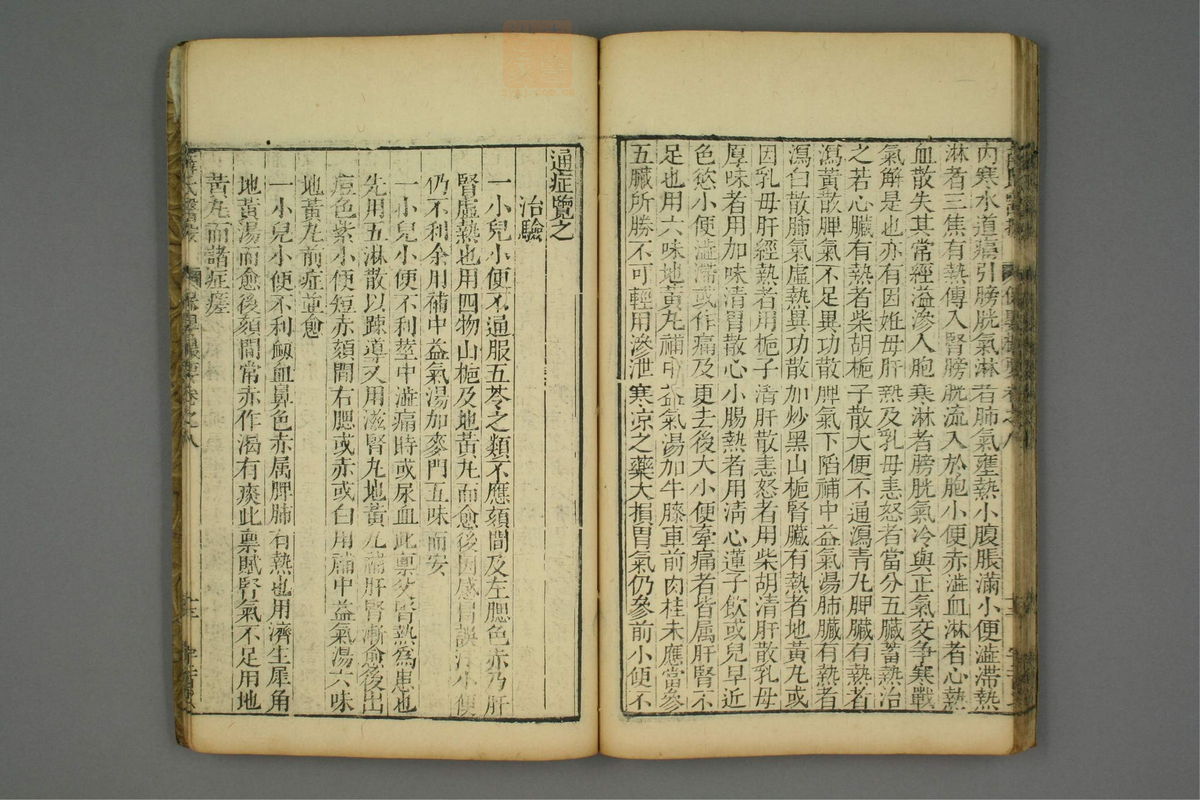 内寒水道癃引膀胱氣淋者肺氣壅熱小腹脹滿小便澁滯熱
淋者三焦有熱傳入腎膀胱流入於胞小便赤澁血淋者心熱
血散失其常經溢滲入胞寒淋者膀胱氣冷與正氣交爭寒戰
氣解是也亦有因姙母肝熱及乳母恚怒者當分五臟蓄熱治
之若心臟有熱者柴胡梔子散大便不通瀉青丸脾臟有熱者
瀉黃散脾氣不足異功散脾氣下陷補中益氣湯肺臟有熱者
瀉白散肺氣虛熱異功散加炒黑山梔腎臟有熱者地黃丸或
因乳母肝經熱者用梔子清肝散恚怒者用柴胡清肝散乳母
厚味者用加味清胃散心小腸熱者用清心蓮子飲或兒早近
色慾小便澁滯或作痛及更去後大小便牽痛者皆属肝腎不
足也用六味地黃丸補中益氣湯加牛膝車前肉桂未應當參
五臟所勝不可輕用滲泄寒凉之藥大損胃氣仍參前小便不
通症覽之
治驗
一小兒小便不通服五苓之類不應頦間及左腮色赤乃肝
腎虛熱也用四物山梔及地黃丸而愈後因感冒誤汗小便
仍不利余用補中益氣湯加麥門五味而安
一小兒小便不利莖中澁痛時或尿血此禀父腎熱為患也
先用五淋散以踈導又用滋腎丸地黃丸補肝腎漸愈後出
痘色紫小便短赤頦間右腮或赤或白用補中益氣湯六味
地黃丸前症並愈
一小兒小便不利衂血鼻色赤属脾肺有熱也用濟生犀角
地黃湯而愈後頦間常赤作渴有痰此禀賦腎氣不足用地
黃丸而諸症瘥